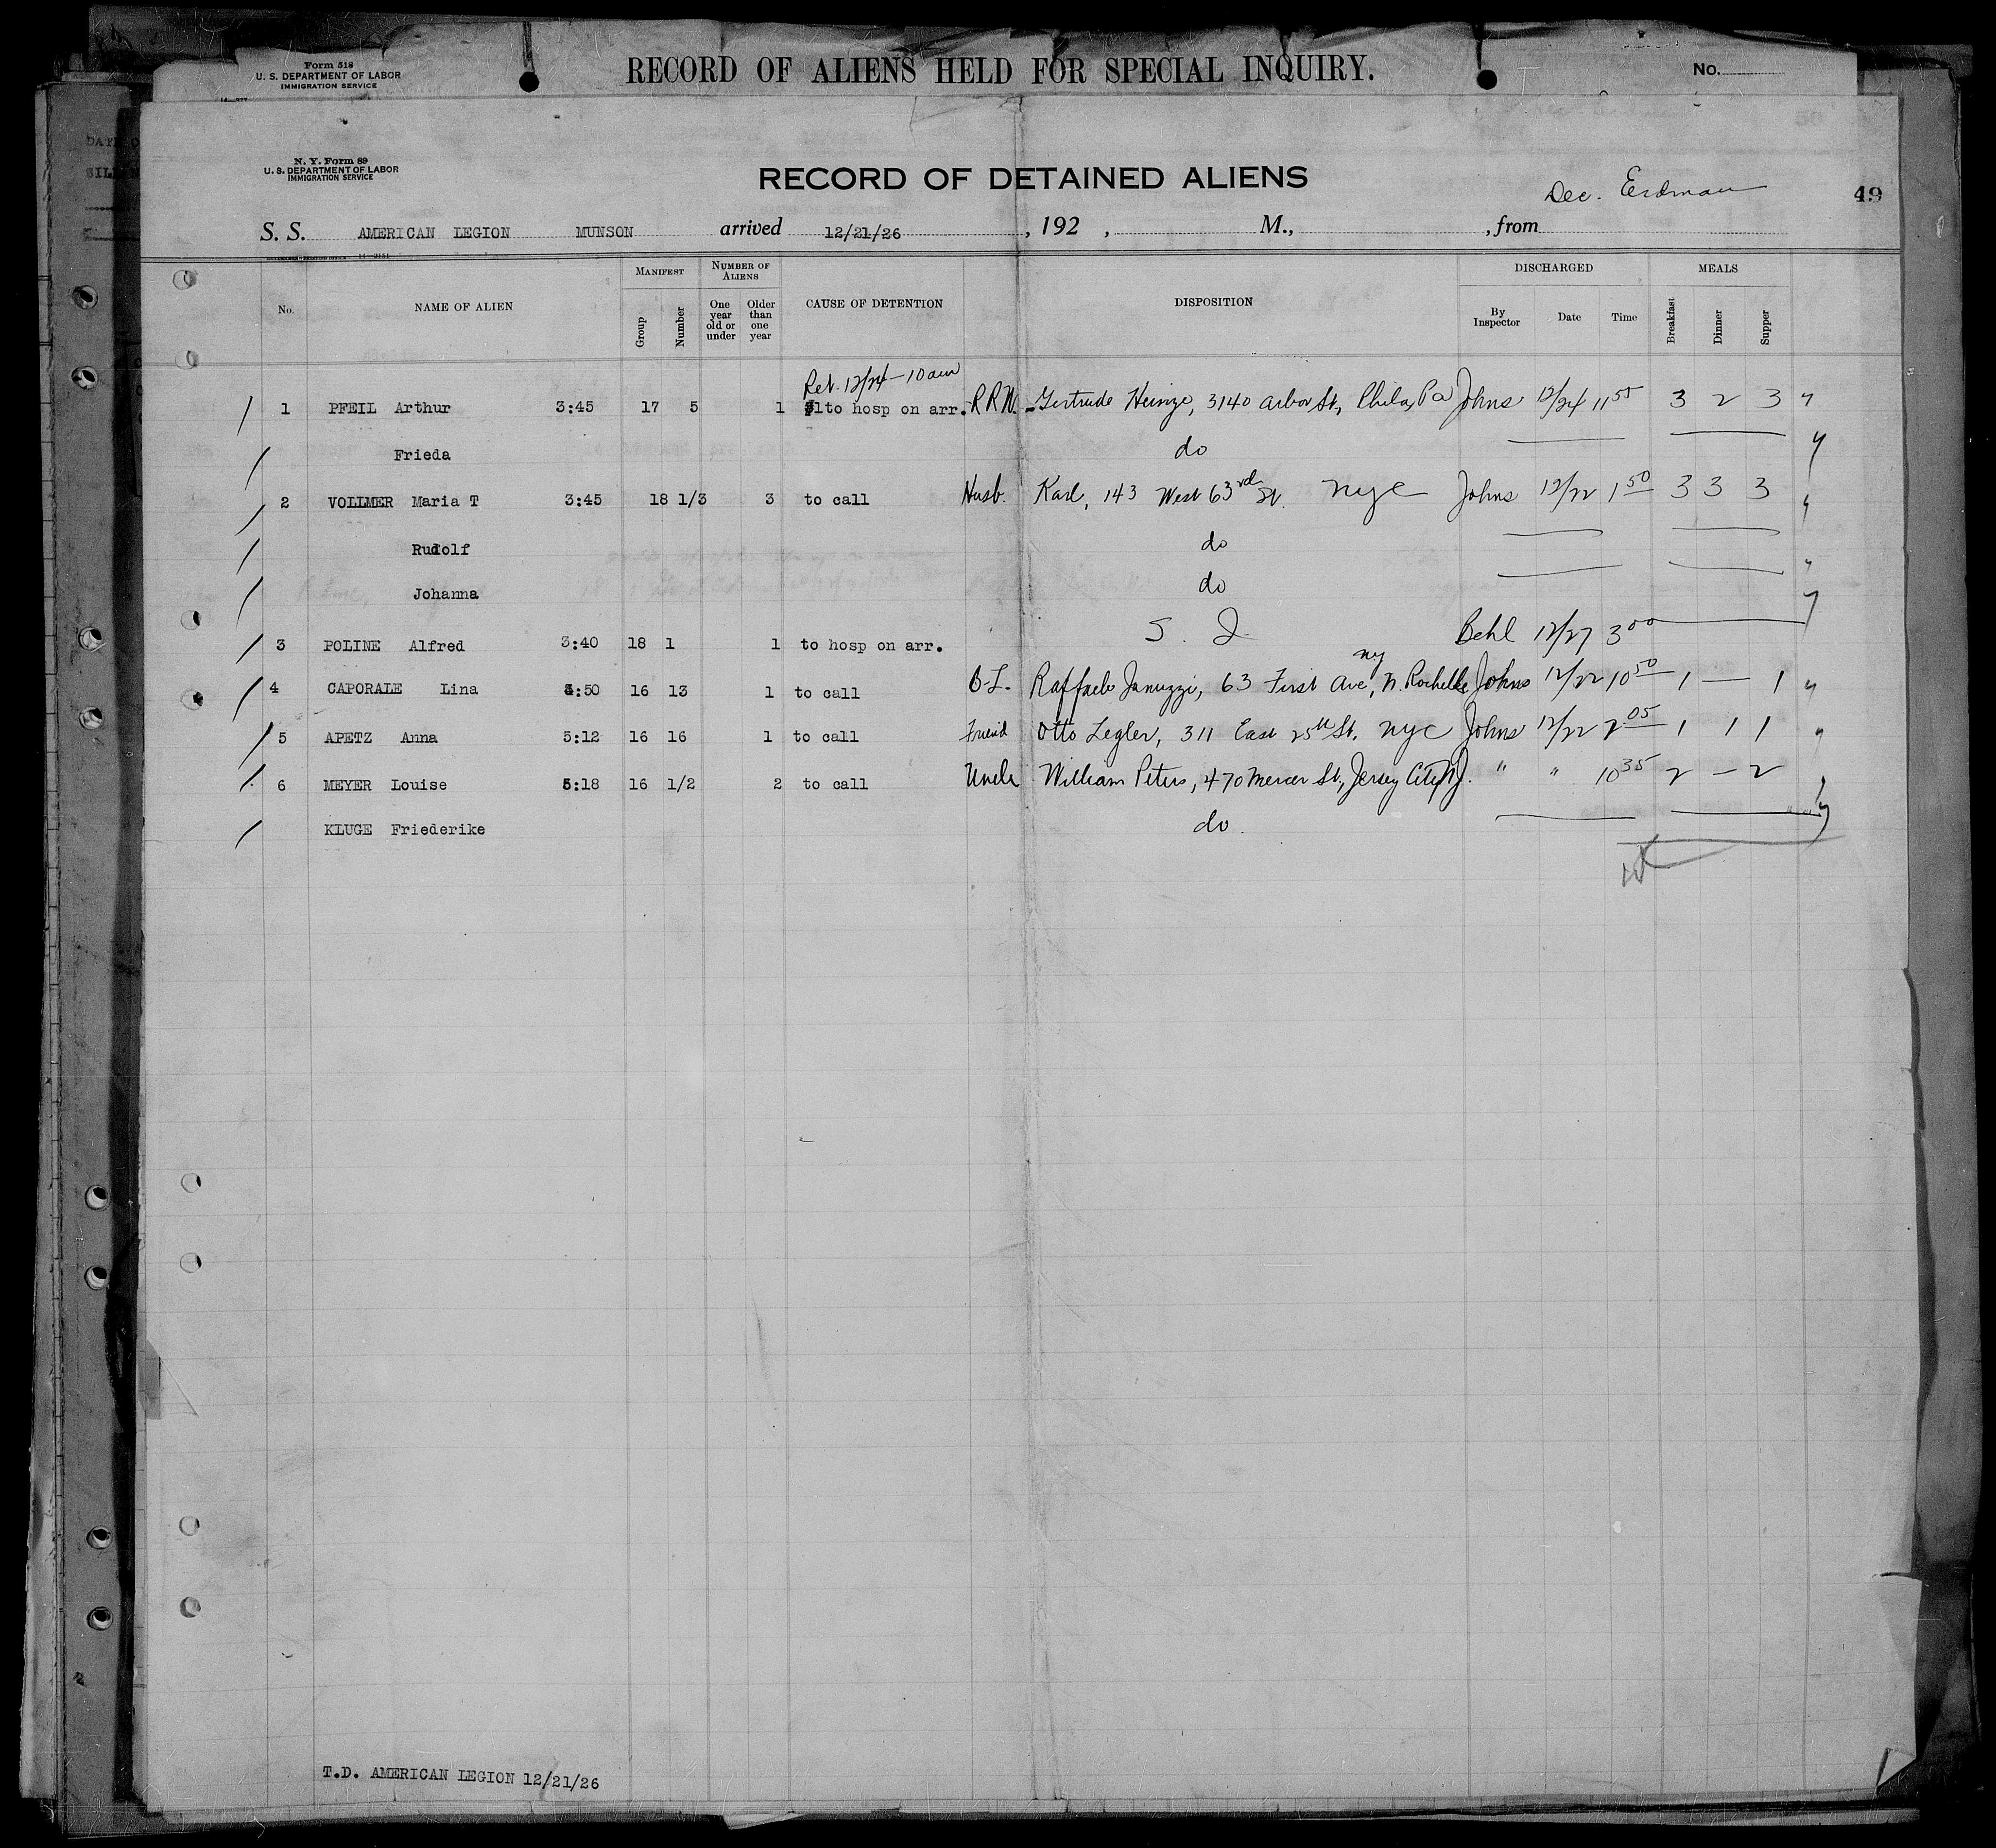 Form 518
U. S. DEPARTMENT OF LABOR
IMMIGRATION SERVICE
RECORD OF ALIENS HELD FOR SPECIAL INQUIRY.
No.
N. Y. Form 89
U. S. DEPARTMENT OF LABOR
IMMIGRATION SERVICE
RECORD OF DETAINED ALIENS
Dec. Erdman
49
S. S. AMERICAN LEGION MUNSON arrived 12/21/26, 192 , M., , from
No. NAME OF ALIEN MANIFEST Group Number NUMBER OF ALIENS One year old or under Older than one year CAUSE OF DETENTION DISPOSITION DISCHARGED By Inspector Date Time MEALS Breakfast Dinner Supper
Ret. 12/24 - 10 am
1 PFEIL Arthur 3:45 17 5 1 1 to hosp on arr. R R N. Gertrude Heinze, 3140 Arbor St., Phila, Pa Johns 12/24 11 55 3 2 3
Frieda do
2 VOLLMER Maria T 3:45 18 1/3 3 to call Husb. Karl, 143 West 63rd St. NYC Johns 12/22 1 50 3 3 3
Rudolf do
Johanna do
3 POLINE Alfred 3:40 18 1 1 to hosp on arr. S. I. Behl 12/27 3 00
4 CAPORALE Lina 4:50 16 13 1 to call B-L. Raffaele Januzzi, 63 First Ave, N. Rochelle NY Johns 12/22 10 50 1 — 1
5 APETZ Anna 5:12 16 16 1 to call Friend Otto Legler, 311 East 25th St. NYC Johns 12/22 2 05 1 1 1
6 MEYER Louise 5:18 16 1/2 2 to call Uncle William Peters, 470 Mercer St., Jersey City NJ. " " 10 35 2 — 2
KLUGE Friederike do.
T.D. AMERICAN LEGION 12/21/26